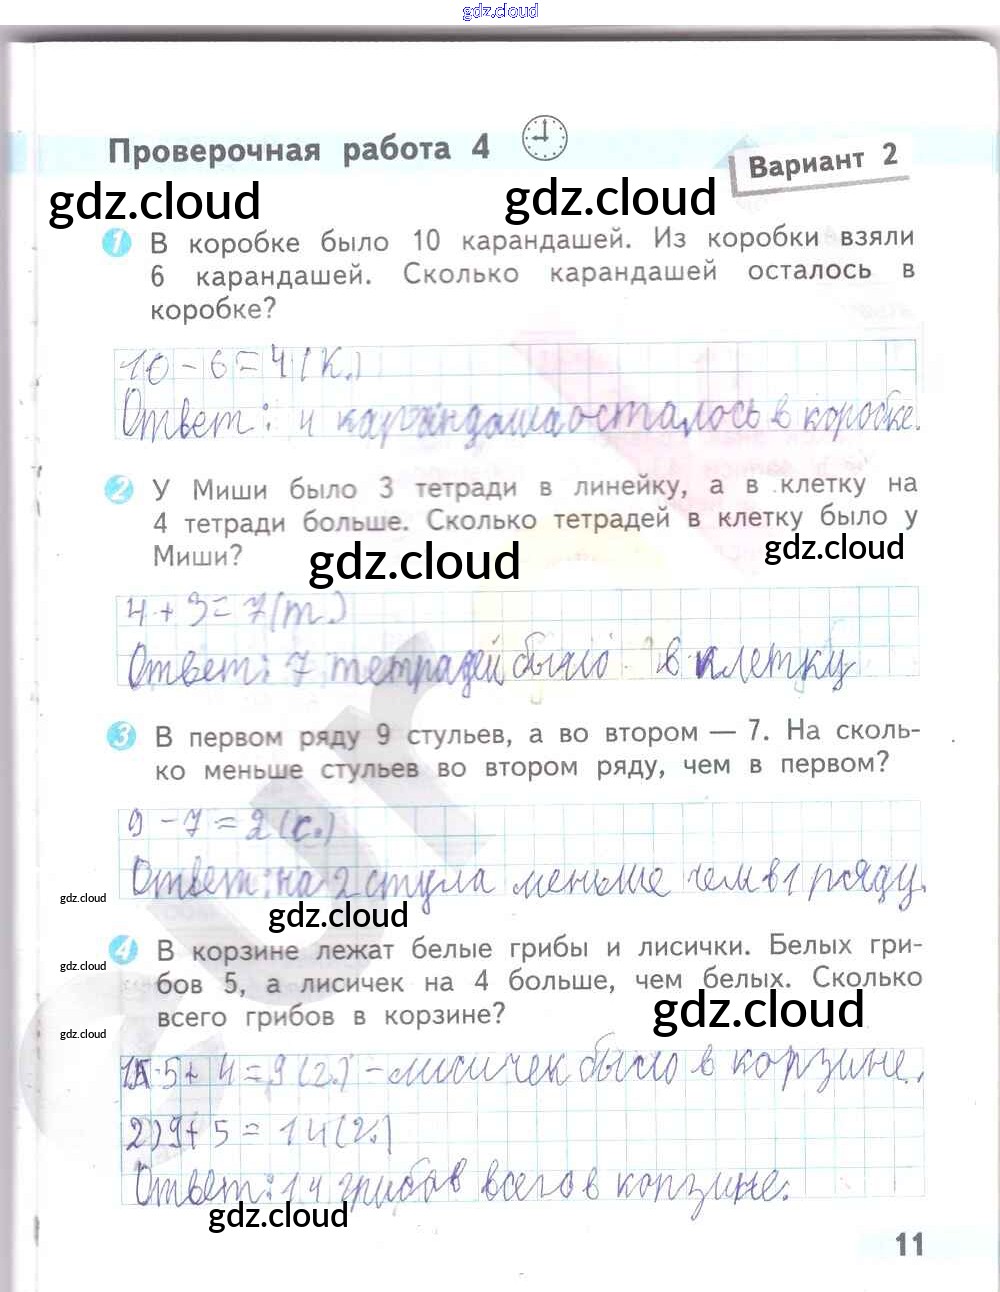 gdz.cloud
Проверочная работа 4
Вариант 2
gdz.cloud
gdz.cloud
1 В коробке было 10 карандашей. Из коробки взяли
6 карандашей. Сколько карандашей осталось в
коробке?
10 - 6 = 4 (к.)
Ответ: 4 карандаша осталось в коробке.
2 У Миши было 3 тетради в линейку, а в клетку на
4 тетради больше. Сколько тетрадей в клетку было у
Миши?
gdz.cloud
gdz.cloud
4 + 3 = 7 (т.)
Ответ: 7 тетрадей было в клетку
3 В первом ряду 9 стульев, а во втором — 7. На сколь-
ко меньше стульев во втором ряду, чем в первом?
9 - 7 = 2 (с.)
Ответ: на 2 стула меньше чем в 1 ряду.
gdz.cloud
gdz.cloud
4 В корзине лежат белые грибы и лисички. Белых гри-
бов 5, а лисичек на 4 больше, чем белых. Сколько
всего грибов в корзине?
gdz.cloud
gdz.cloud
gdz.cloud
1) 5 + 4 = 9 (г.) - лисичек было в корзине.
2) 9 + 5 = 14 (г.)
Ответ: 14 грибов всего в корзине.
gdz.cloud
11